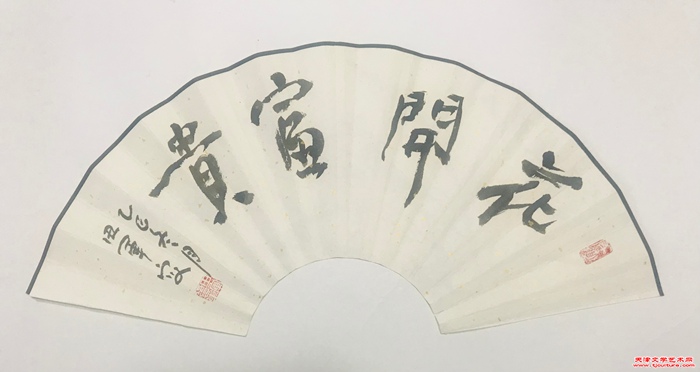 花開富貴
乙巳 月
天津文学艺术网
www.tjculture.com